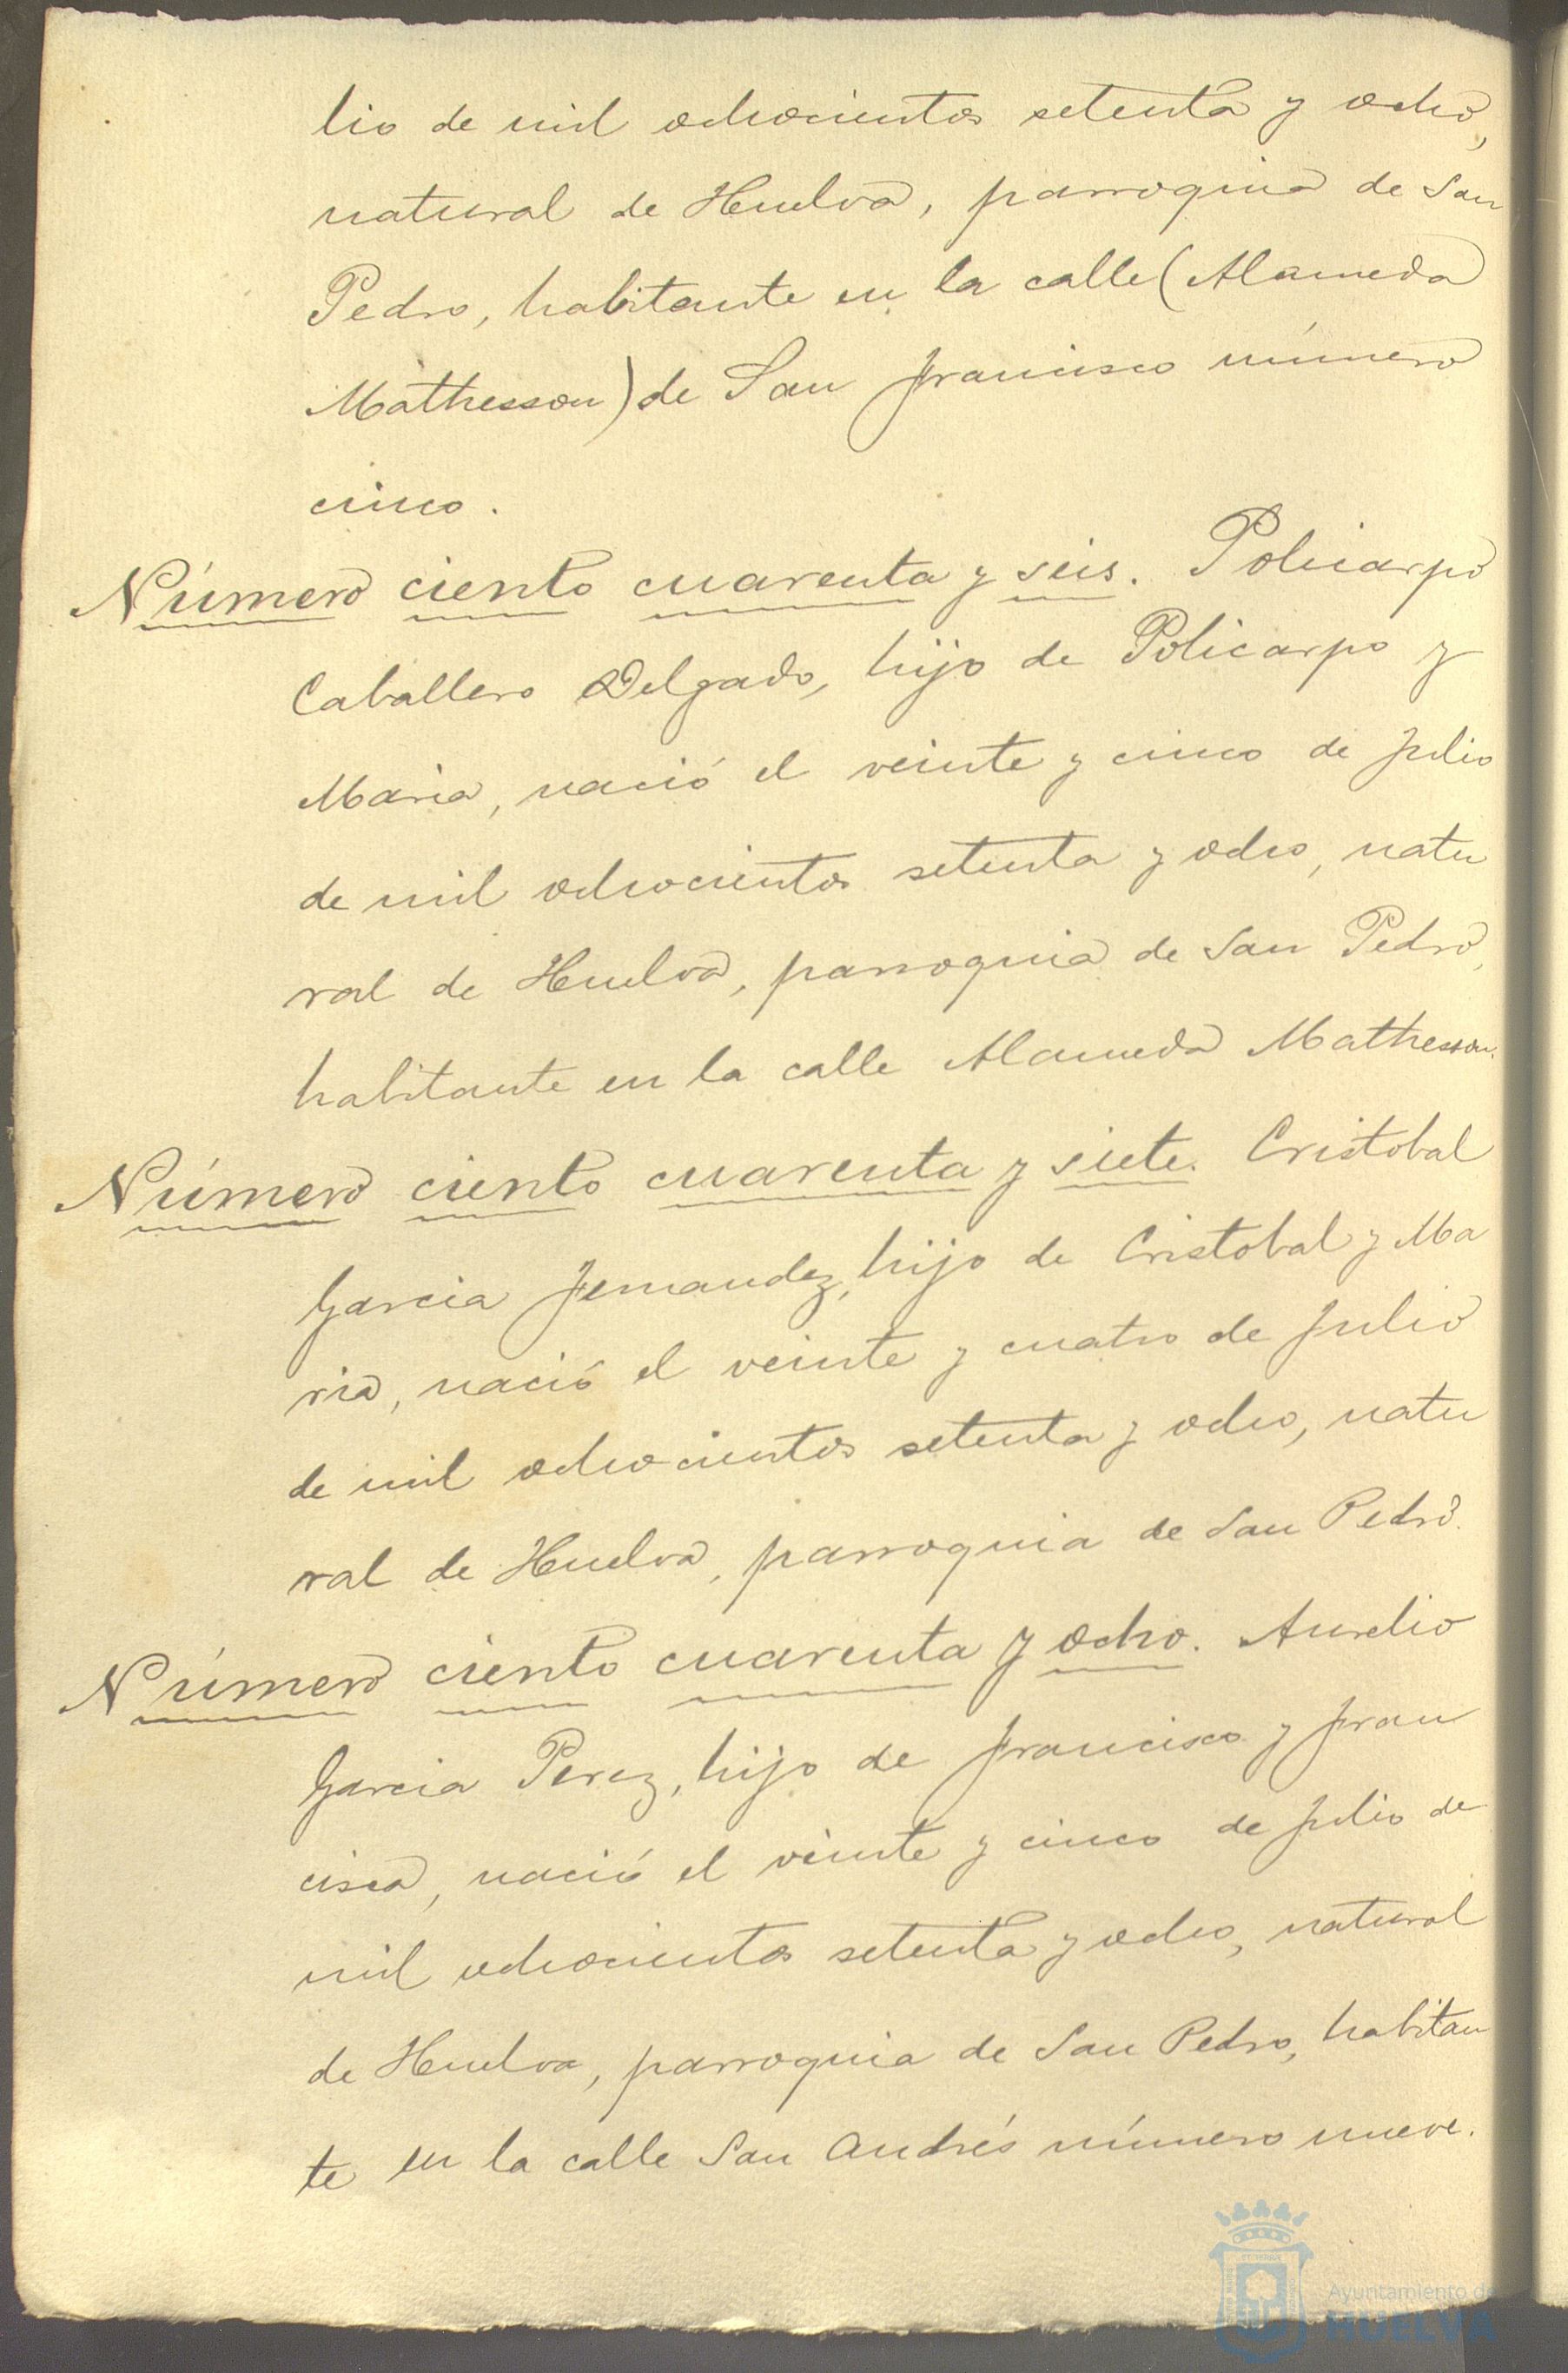 lio de mil ochocientos setenta y ocho,
natural de Huelva, parroquia de San
Pedro, habitante en la calle (Alameda
Mathesson) de San Francisco número
cinco.
Número ciento cuarenta y seis. Policarpo
Caballero Delgado, hijo de Policarpo y
Maria, nació el veinte y cinco de Julio
de mil ochocientos setenta y ocho, natu
ral de Huelva, parroquia de San Pedro,
habitante en la calle Alameda Mathesson.
Número ciento cuarenta y siete. Cristobal
Garcia Fernandez, hijo de Cristobal y Ma
ria, nació el veinte y cuatro de Julio
de mil ochocientos setenta y ocho, natu
ral de Huelva, parroquia de San Pedro.
Número ciento cuarenta y ocho. Aurelio
Garcia Perez, hijo de Francisco y Fran
cisca, nació el veinte y cinco de Julio de
mil ochocientos setenta y ocho, natural
de Huelva, parroquia de San Pedro, habitan
te en la calle San Andrés número nueve.
Ayuntamiento de
HUELVA